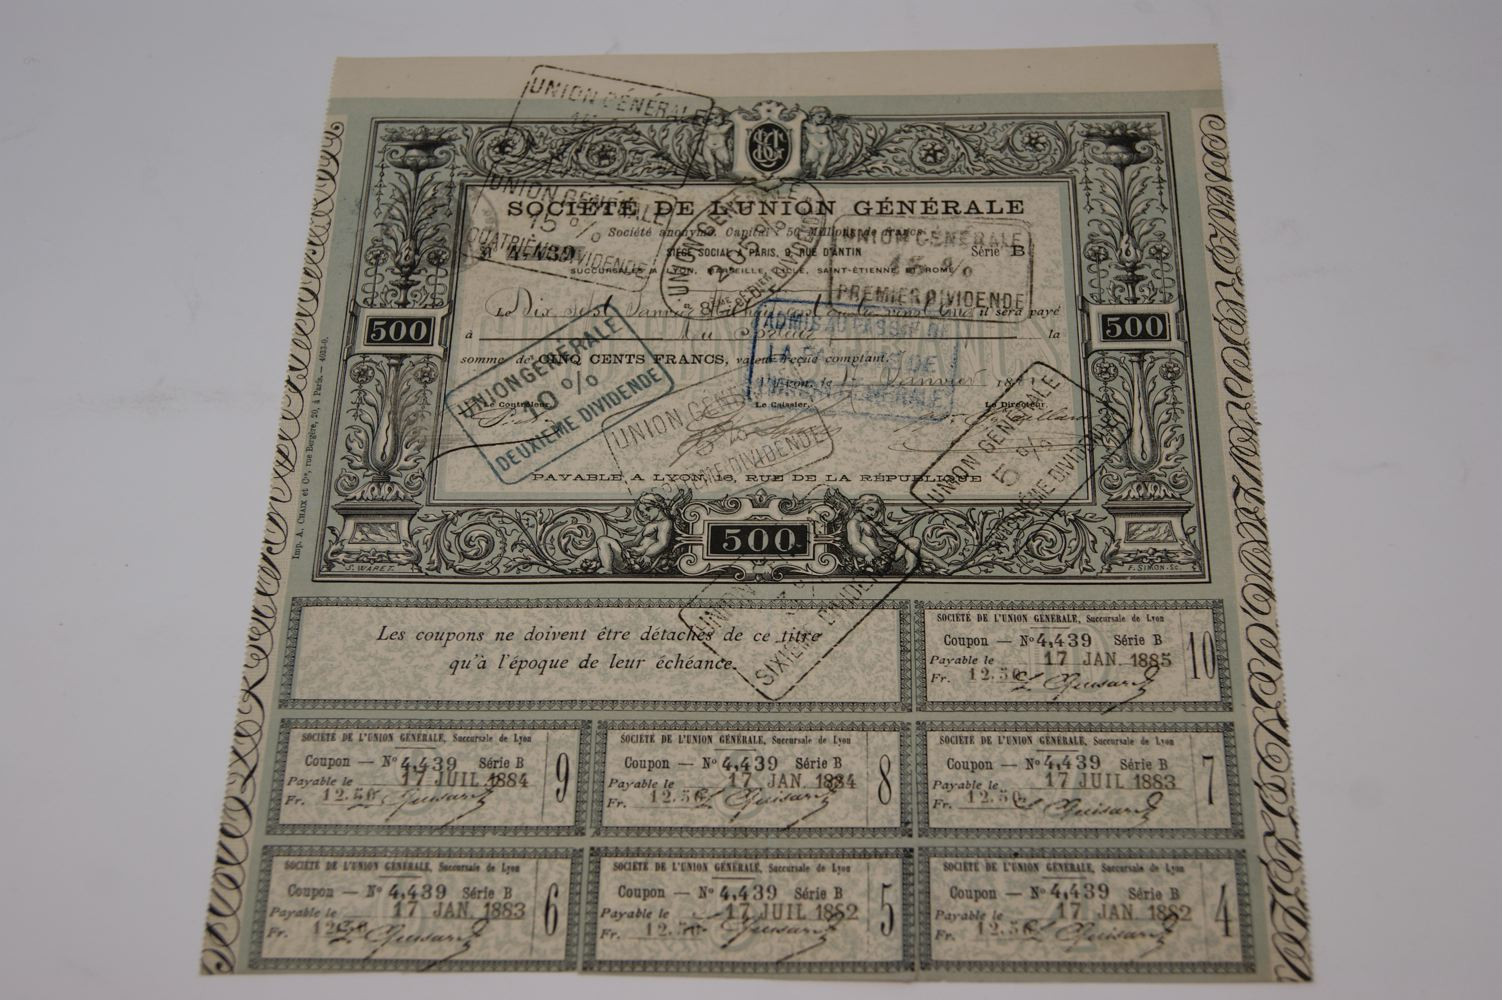 SOCIÉTÉ DE L'UNION GÉNÉRALE
Société anonyme. Capital : 50 Millions de francs
SIÈGE SOCIAL A PARIS, 9, RUE D'ANTIN
Nº 4,439 Série B
SUCCURSALES A LYON, MARSEILLE, LILLE, SAINT-ÉTIENNE ET ROME
Le Dix sept Janvier il sera payé
à la
somme de CINQ CENTS FRANCS, valeur reçue comptant.
Lyon, le Janvier 18
Le Contrôleur, Le Caissier, Le Directeur,
PAYABLE A LYON, 16, RUE DE LA RÉPUBLIQUE
500
500
500
J. WARET. F. SIMON. SC.
Imp. A. CHAIX et Cie, rue Bergère, 20, à Paris. — 4033-0.
UNION GÉNÉRALE
UNION GÉNÉRALE
15 %
QUATRIÈME DIVIDENDE
UNION GÉNÉRALE
DIVIDENDE
UNION GÉNÉRALE
15 %
PREMIER DIVIDENDE
ADMIS AU PASSIF DE
LA FAILLITE DE
L'UNION GÉNÉRALE
UNION GÉNÉRALE
10 %
DEUXIÈME DIVIDENDE
UNION GÉNÉRALE
DIVIDENDE
UNION GÉNÉRALE
5 %
DIVIDENDE
UNION
SIXIÈME DIVIDENDE
Les coupons ne doivent être détachés de ce titre
qu'à l'époque de leur échéance.
SOCIÉTÉ DE L'UNION GÉNÉRALE, Succursale de Lyon
Coupon — Nº 4,439 Série B
Payable le 17 JAN. 1885
Fr. 12.50
10
SOCIÉTÉ DE L'UNION GÉNÉRALE, Succursale de Lyon
Coupon — Nº 4,439 Série B
Payable le 17 JUIL 1884
Fr. 12.50
9
SOCIÉTÉ DE L'UNION GÉNÉRALE, Succursale de Lyon
Coupon — Nº 4,439 Série B
Payable le 17 JAN. 1884
Fr. 12.50
8
SOCIÉTÉ DE L'UNION GÉNÉRALE, Succursale de Lyon
Coupon — Nº 4,439 Série B
Payable le 17 JUIL 1883
Fr. 12.50
7
SOCIÉTÉ DE L'UNION GÉNÉRALE, Succursale de Lyon
Coupon — Nº 4,439 Série B
Payable le 17 JAN. 1883
Fr. 12.50
6
SOCIÉTÉ DE L'UNION GÉNÉRALE, Succursale de Lyon
Coupon — Nº 4,439 Série B
Payable le 17 JUIL 1882
Fr. 12.50
5
SOCIÉTÉ DE L'UNION GÉNÉRALE, Succursale de Lyon
Coupon — Nº 4,439 Série B
Payable le 17 JAN. 1882
Fr. 12.50
4